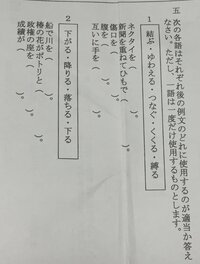 五 次の各語はそれぞれ後の例文のどれに使用するのが適当か答え
なさい。ただし、一語は一度だけ使用するものとします。
1 結ぶ・ゆわえる・つなぐ・くくる・縛る
ネクタイを（　　　）。
新聞を重ねてひもで（　　　）。
傷口を（　　　）。
腹を（　　　）。
互いに手を（　　　）。
2 下がる・降りる・落ちる・下る
船で川を（　　　）。
椿の花がポトリと（　　　）。
政権の座を（　　　）。
成績が（　　　）。